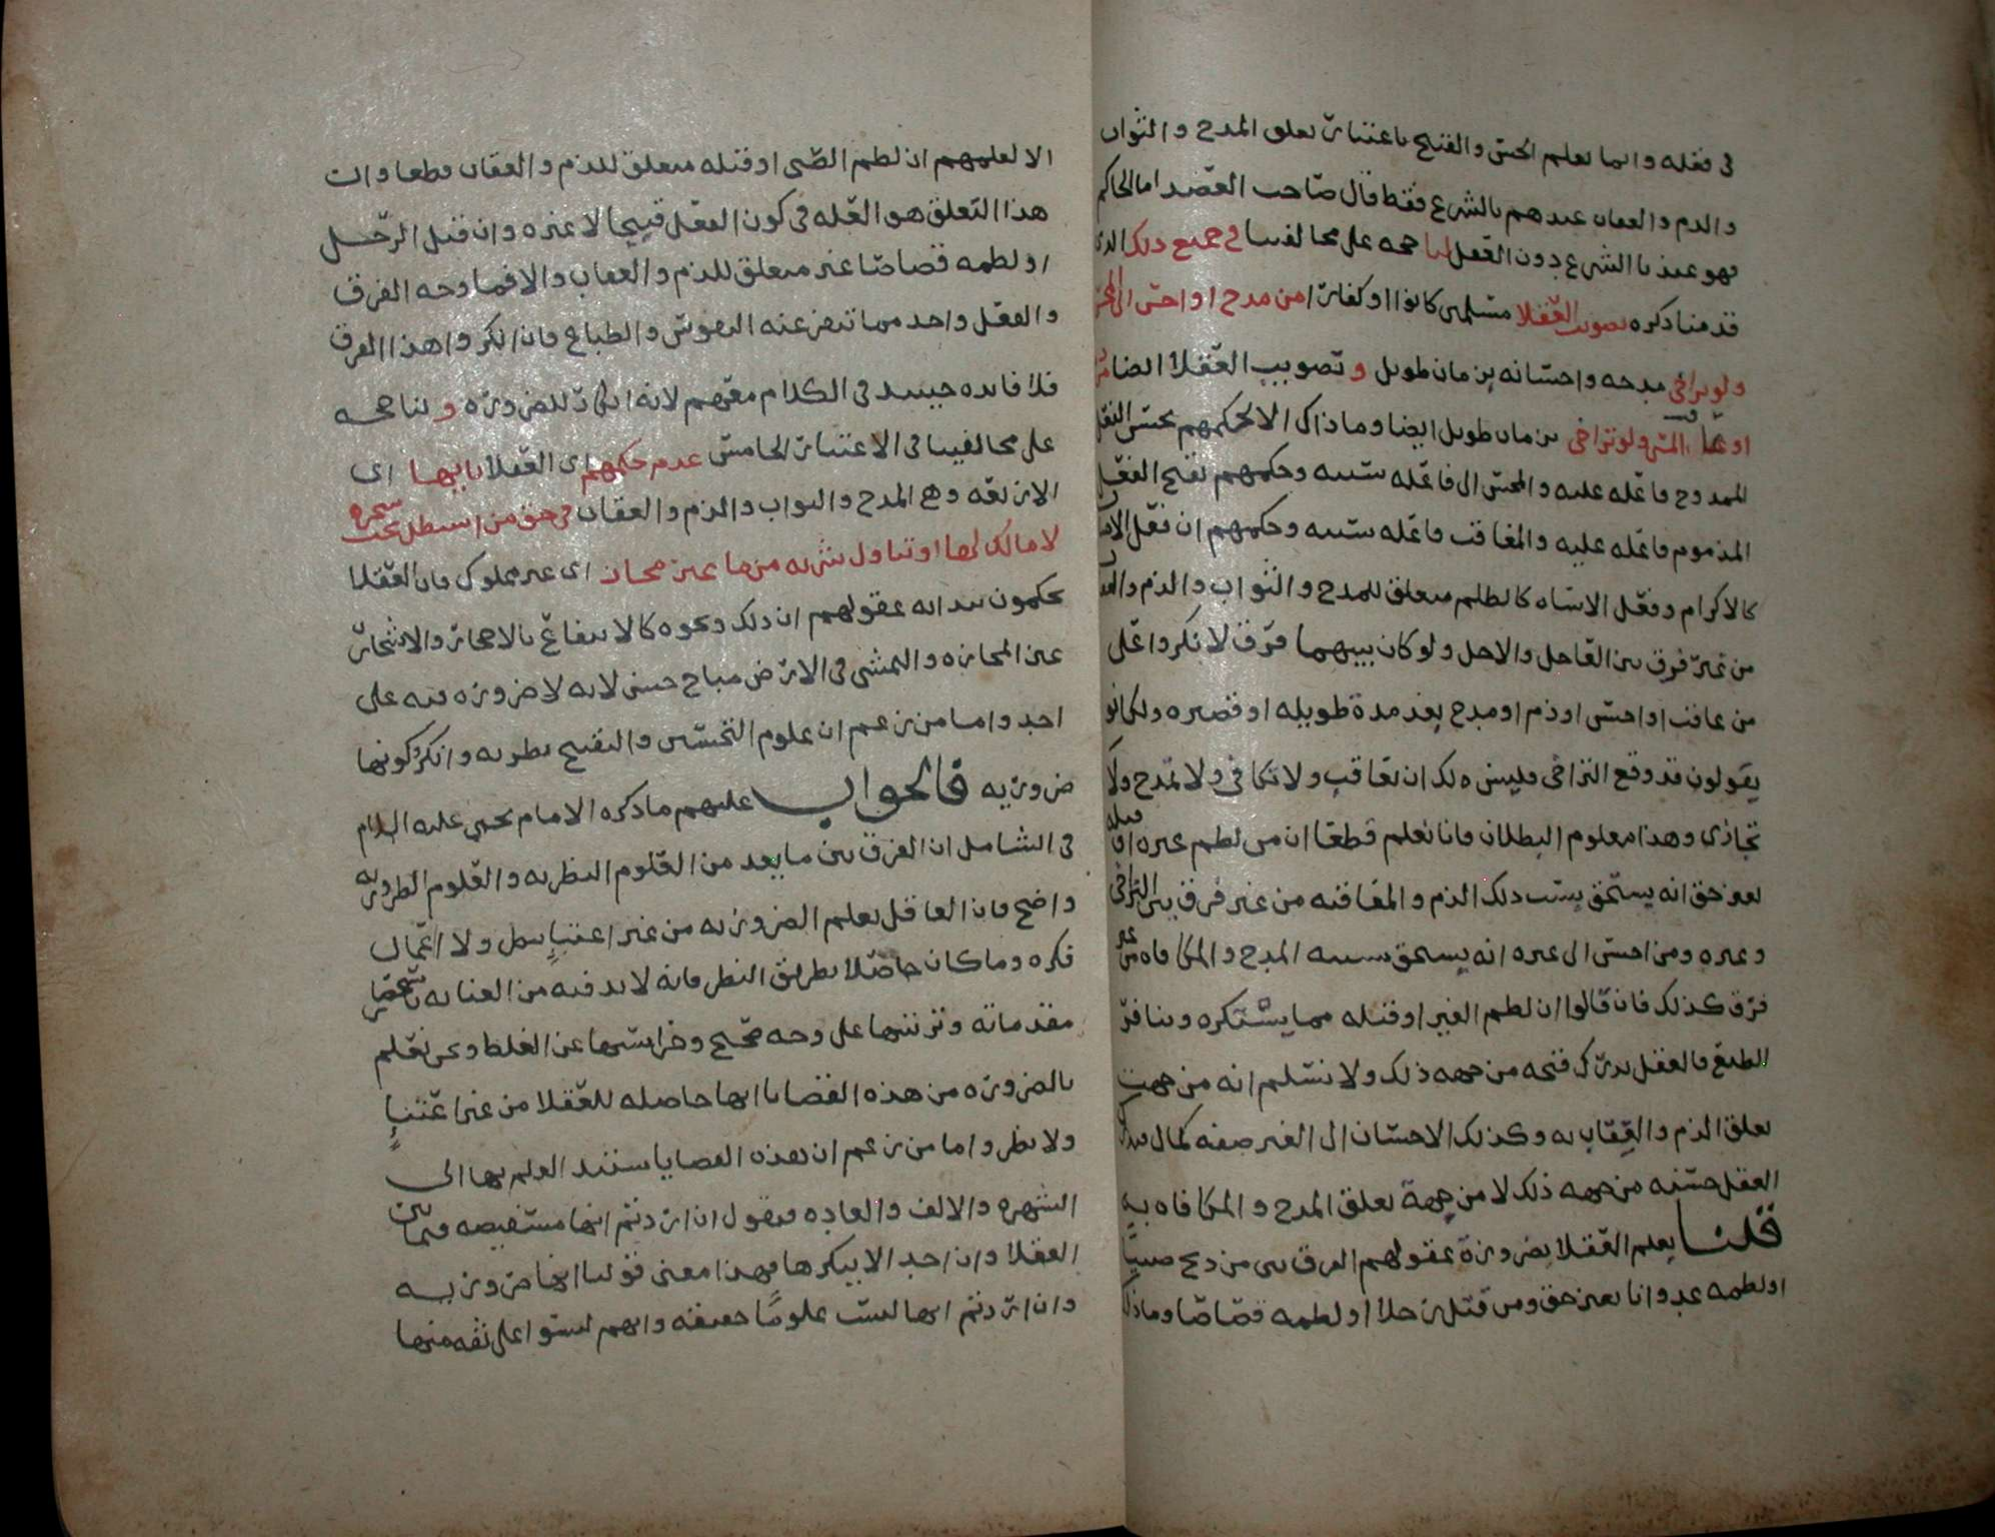 في فعله وانما يعلم الحسن والقبيح باعتبار تعلق المدح والثواب
والذم والعقاب عندهم بالشرع فقط قال صاحب العضد اما الحاكم
فهو عندنا الشرع دون العقل لنا حجه على مخالفينا في جميع ذلك الذي
قدمنا ذكره تصويب العقلا مسلمين كانوا او كفارا من مدح او احسن الى المحسن
ولو تراخى مدحه واحسانه بزمان طويل و تصويب العقلا ايضا من ذم
او عاقب المسي ولو تراخى بزمان طويل ايضا وما ذاك الا لحكمهم بحسن الفعل
الممدوح فاعله عليه والمحسن الى فاعله بسببه وحكمهم بقبح الفعل
المذموم فاعله عليه والمعاقب فاعله بسببه وحكمهم ان فعل
كالاكرام وفعل الاساه كالظلم متعلق للمدح والثواب والذم والعقاب
من غير فرق بين العاجل والاجل ولو كان بينهما فرق لانكروا على
من عاقب او احسن او ذم او مدح بعد مدة طويله او قصيره ولكانوا
يقولون قد وقع التراخي فليس لك ان تعاقب ولا تكافي ولا تمدح ولا
تجازى وهذا معلوم البطلان فانا نعلم قطعا ان من لطم غيره او قتله
بغير حق انه يستحق بسبب ذلك الذم والمعاقبه من غير فرق بين التراخي
وغيره ومن احسن الى غيره انه يستحق بسببه المدح والمكافاه من غير
فرق كذلك فان قالوا ان لطم الغير او قتله مما يستكره وينافر
الطبع فالعقل يدرك قبحه من جهه ذلك ولا نسلم انه من جهت
تعلق الذم والعقاب به وكذلك الاحسان الى الغير صفه كمال يدرك
العقل حسنه من جهه ذلك لا من جهة تعلق المدح والمكافاه به
قلنا يعلم العقلا بضرورة عقولهم الفرق بين من ذبح صبيا
او لطمه عدوانا بغير حق ومن قتل رجلا او لطمه قصاصا وما ذاك
الا لعلمهم ان لطم الصبى او قتله متعلق للذم والعقاب قطعا وان
هذا التعلق هو العله في كون الفعل قبيحا لا غيره وان قتل الرجل
او لطمه قصاصا غير متعلق للذم والعقاب والا فما وجه الفرق
والفعل واحد مما تنفر عنه النفوس والطباع فان انكروا هذا الفرق
فلا فايده حينيذ في الكلام معهم لانه انكار للضروره و لنا حجه
على مخالفينا في الاعتبار الخامس عدم حكمهم اى العقلا بايها اى
الاربعه وهي المدح والثواب والذم والعقاب في حق من استظل تحت شجره
لا مالك لها او تناول شربه من ماء غير محاز اى غير مملوك فان العقلا
يحكمون ببدايه عقولهم ان ذلك ونحوه كالانتفاع بالاحجار والاشجار
غير المحازه والتمشى في الارض مباح حسن لانه لا ضروره فيه على
احد واما من زعم ان علوم التحسين والتقبيح نظريه وانكر كونها
ضروريه فالجواب عليهم ما ذكره الامام يحيى عليه السلام
في الشامل ان الفرق بين ما يعد من العلوم النظريه والعلوم الضروريه
واضح فان العاقل يعلم الضروريه من غير اعتبار ولا اعمال
فكره وما كان حاصلا بطريق النظر فانه لا بد فيه من العنايه
مقدماته وترتيبها على وجه صحيح وحراستها عن الغلط ونحن نعلم
بالضروره من هذه القضايا انها حاصله للعقلا من غير اعتبار
ولا نظر واما من زعم ان هذه القضايا يستند العلم بها الى
الشهره والالف والعاده فنقول ان اردتم انها مستفيضه فيما بين
العقلا وان احد الا ينكرها فهذا معنى قولنا انها ضروريه
وان اردتم انها ليست علوما حقيقه وانهم ليسوا على ثقه منها